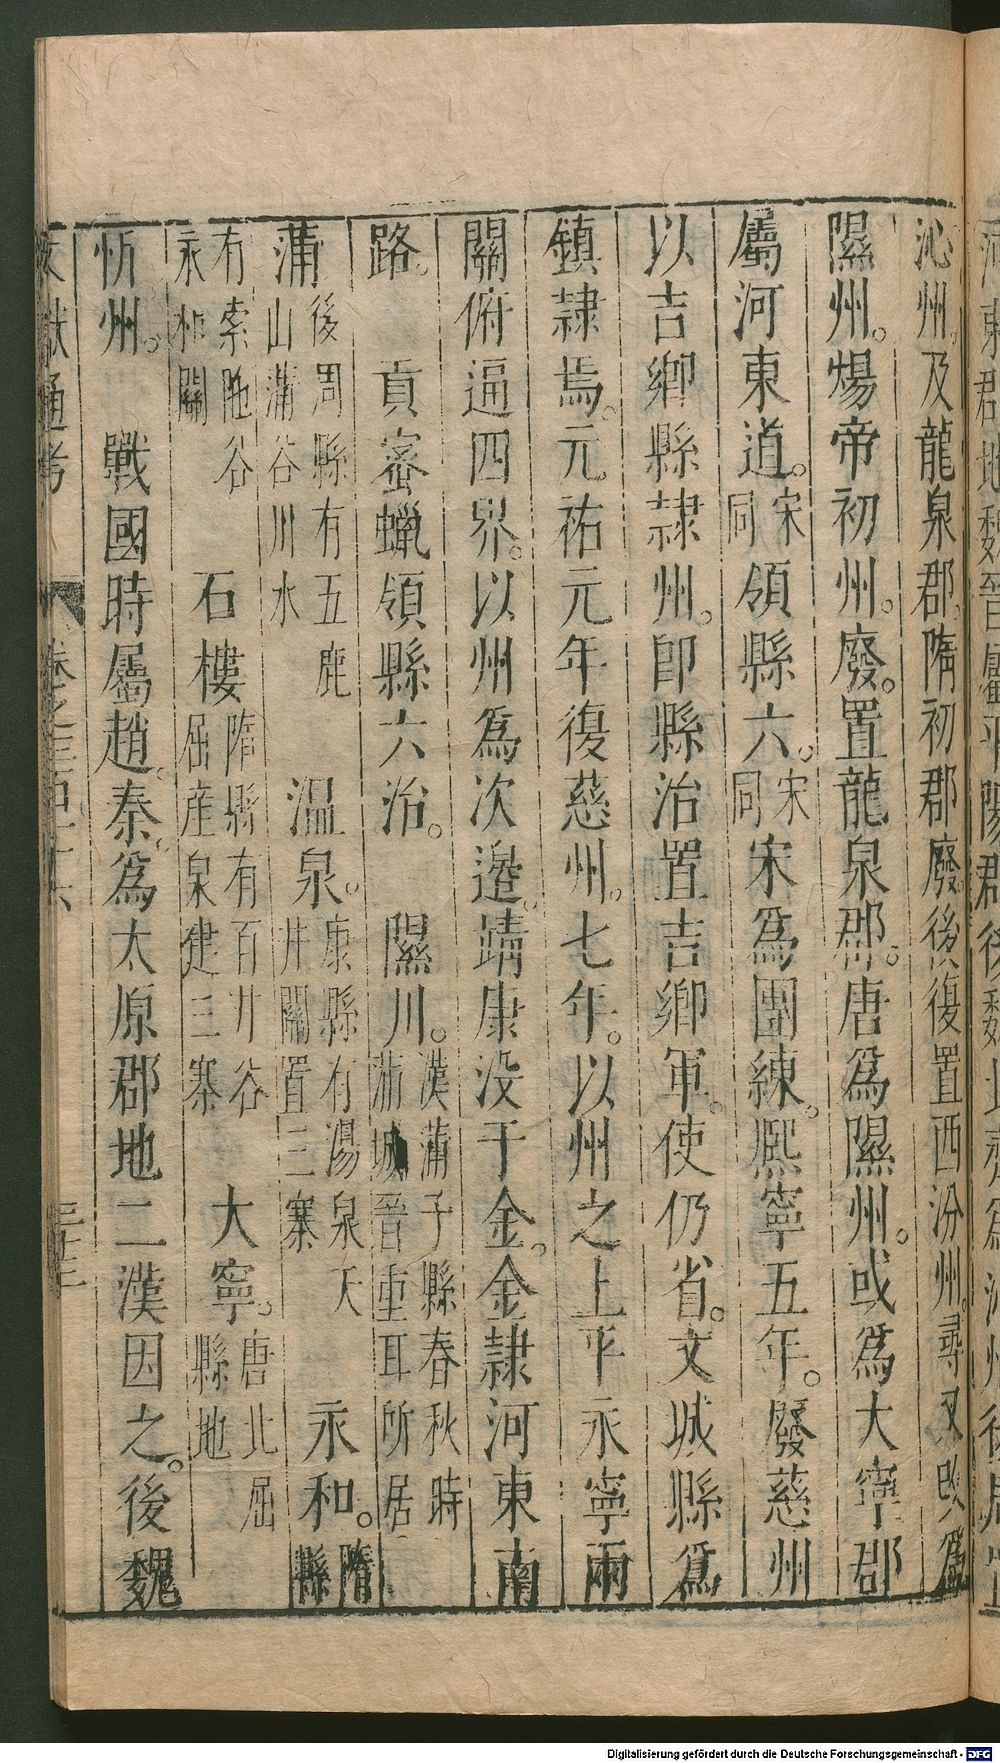 沁州。及龍泉郡。隋初郡廢。後復置西汾州。尋又改爲
隰州。煬帝初州。廢。置龍泉郡。唐爲隰州。或爲大寧郡
屬河東道。宋同領縣六。宋同宋爲團練。熙寧五年。廢慈州
以吉鄉縣隷州。卽縣治置吉鄉軍。使仍省。文城縣爲
鎮隷焉。元祐元年復慈州。七年。以州之上平永寧兩
關俯逼四界。以州爲次邉。靖康没于金。金隷河東南
路。 貢蜜蠟領縣六治。 隰川。漢蒲子縣春秋時蒲城晉重耳所居
蒲後周縣有五鹿山蒲谷川水 温泉。康縣有湯泉天井關置三寨 永和。隋縣
有索陁谷永和關 石樓隋縣有百井谷屈産泉建三寨 大寧。唐北屈縣地
忻州。 戰國時屬趙。秦。爲太原郡地二漢因之。後魏
文獻通考 卷之三百十六 三十三
Digitalisierung gefördert durch die Deutsche Forschungsgemeinschaft - DFG